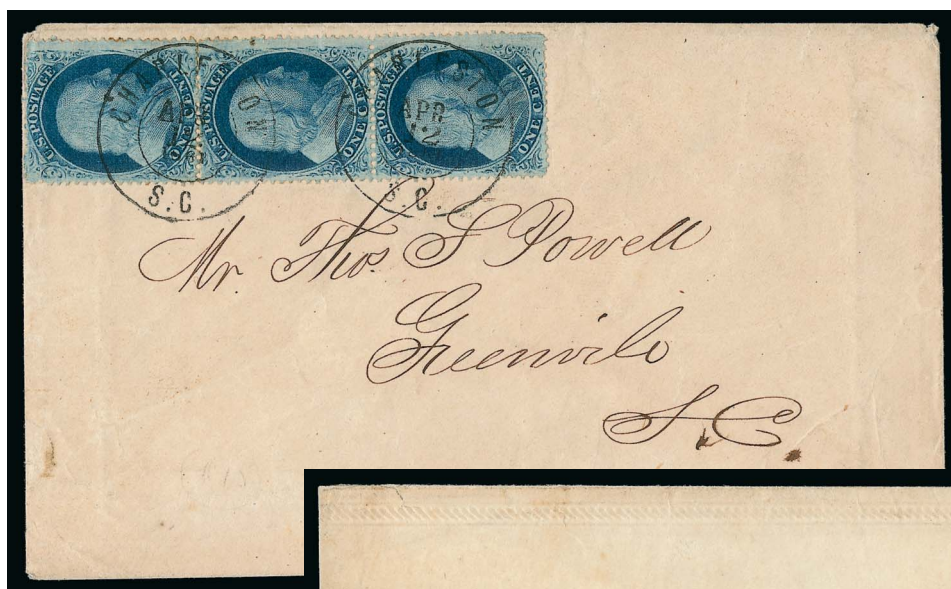 U.S. POSTAGE ONE CENT U.S. POSTAGE ONE CENT U.S. POSTAGE ONE CENT
CHARLESTON CHARLESTON
APR APR
12
S.C. S.C.
Mr. Thos. S Powell
Greenvile
S.C.